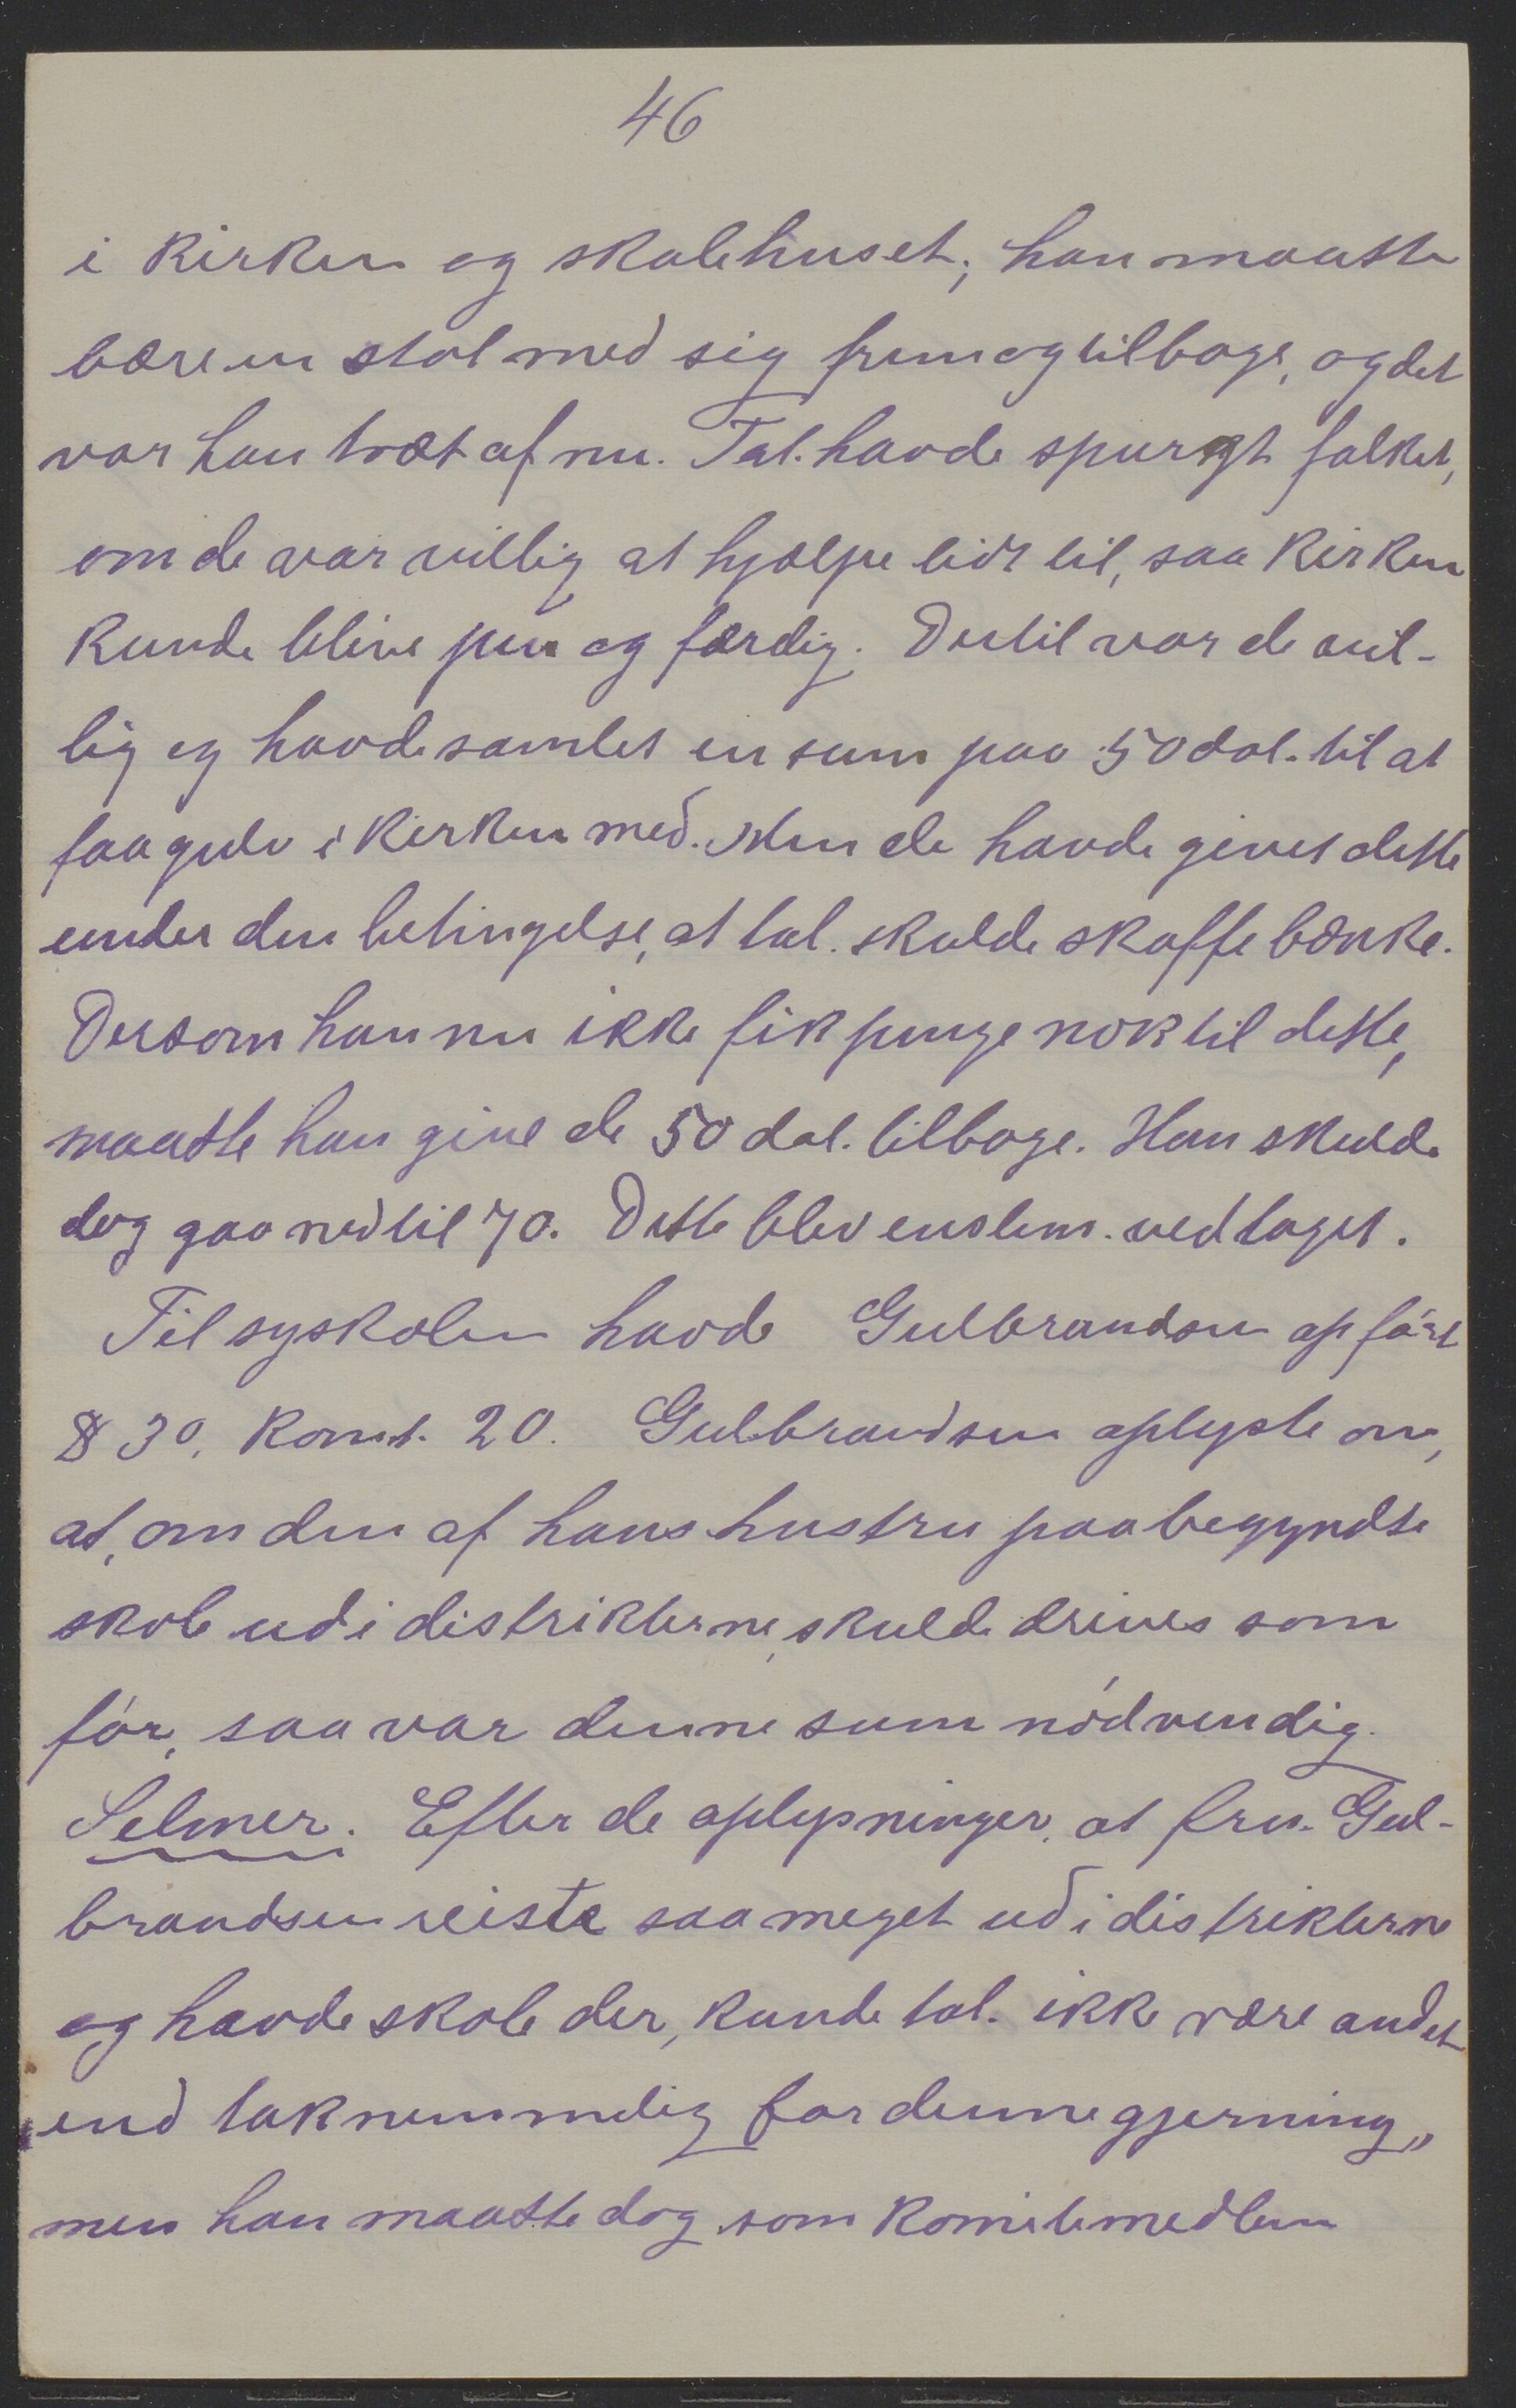 46
i kirken og skolehuset; han maatte
bære en stol med sig frem og tilbage, og det
var han træt af nu. Tal. havde spurgt folket,
om de var villig at hjælpe lidt til, saa kirken
kunde blive pen og færdig. Dertil var de vil-
lig og havde samlet en sum paa 50 dol. til at
faa gulv i kirken med. Men de havde givet dette
under den betingelse, at tal. skulde skaffe bænke.
Dersom han nu ikke fik penge nok til dette,
maatte han give de 50 dol. tilbage. Han skulde
dog gaa ned til 70. Dette blev enstem. vedtaget.
Til syskolen havde Gulbrandsen opført
$ 30, komt. 20. Gulbrandsen oplyste om,
at, om den af hans hustru paabegyndte
skole ud i distrikterne, skulde drives som
før, saa var denne sum nødvendig.
Selmer. Efter de oplysninger, at fru Gul-
brandsen reiste saa meget ud i distrikterne
og havde skole der, kunde tal. ikke være andet
end taknemmelig for denne gjerning,
men han maatte dog som komitemedlem